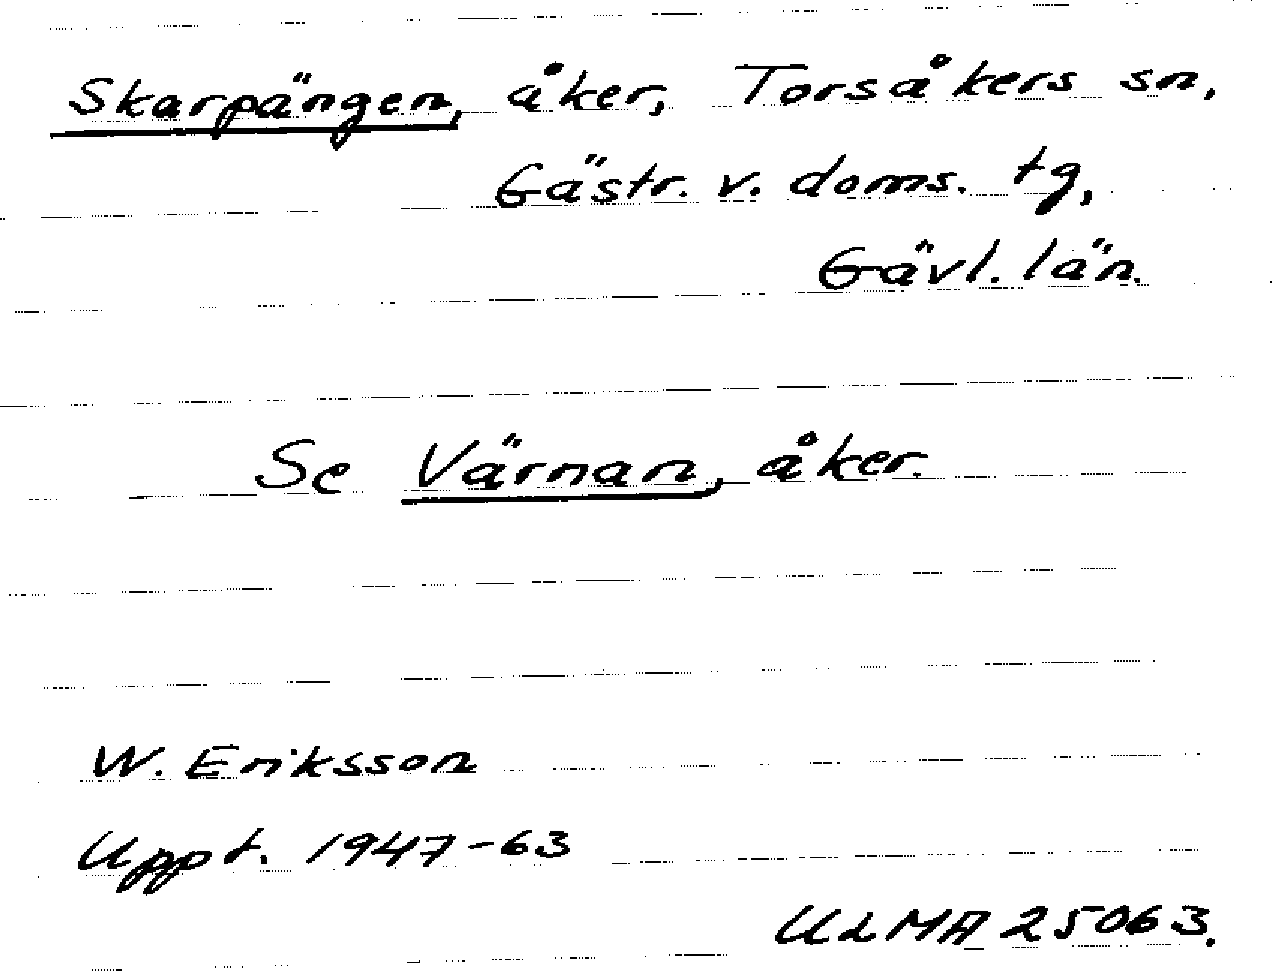 Skarpängen, åker, Torsåkers sn,
Gästr. v. doms. tg,
Gävl. län.
Se Värnan, åker.
W. Eriksson
Uppt. 1947-63
ULMA 25063.